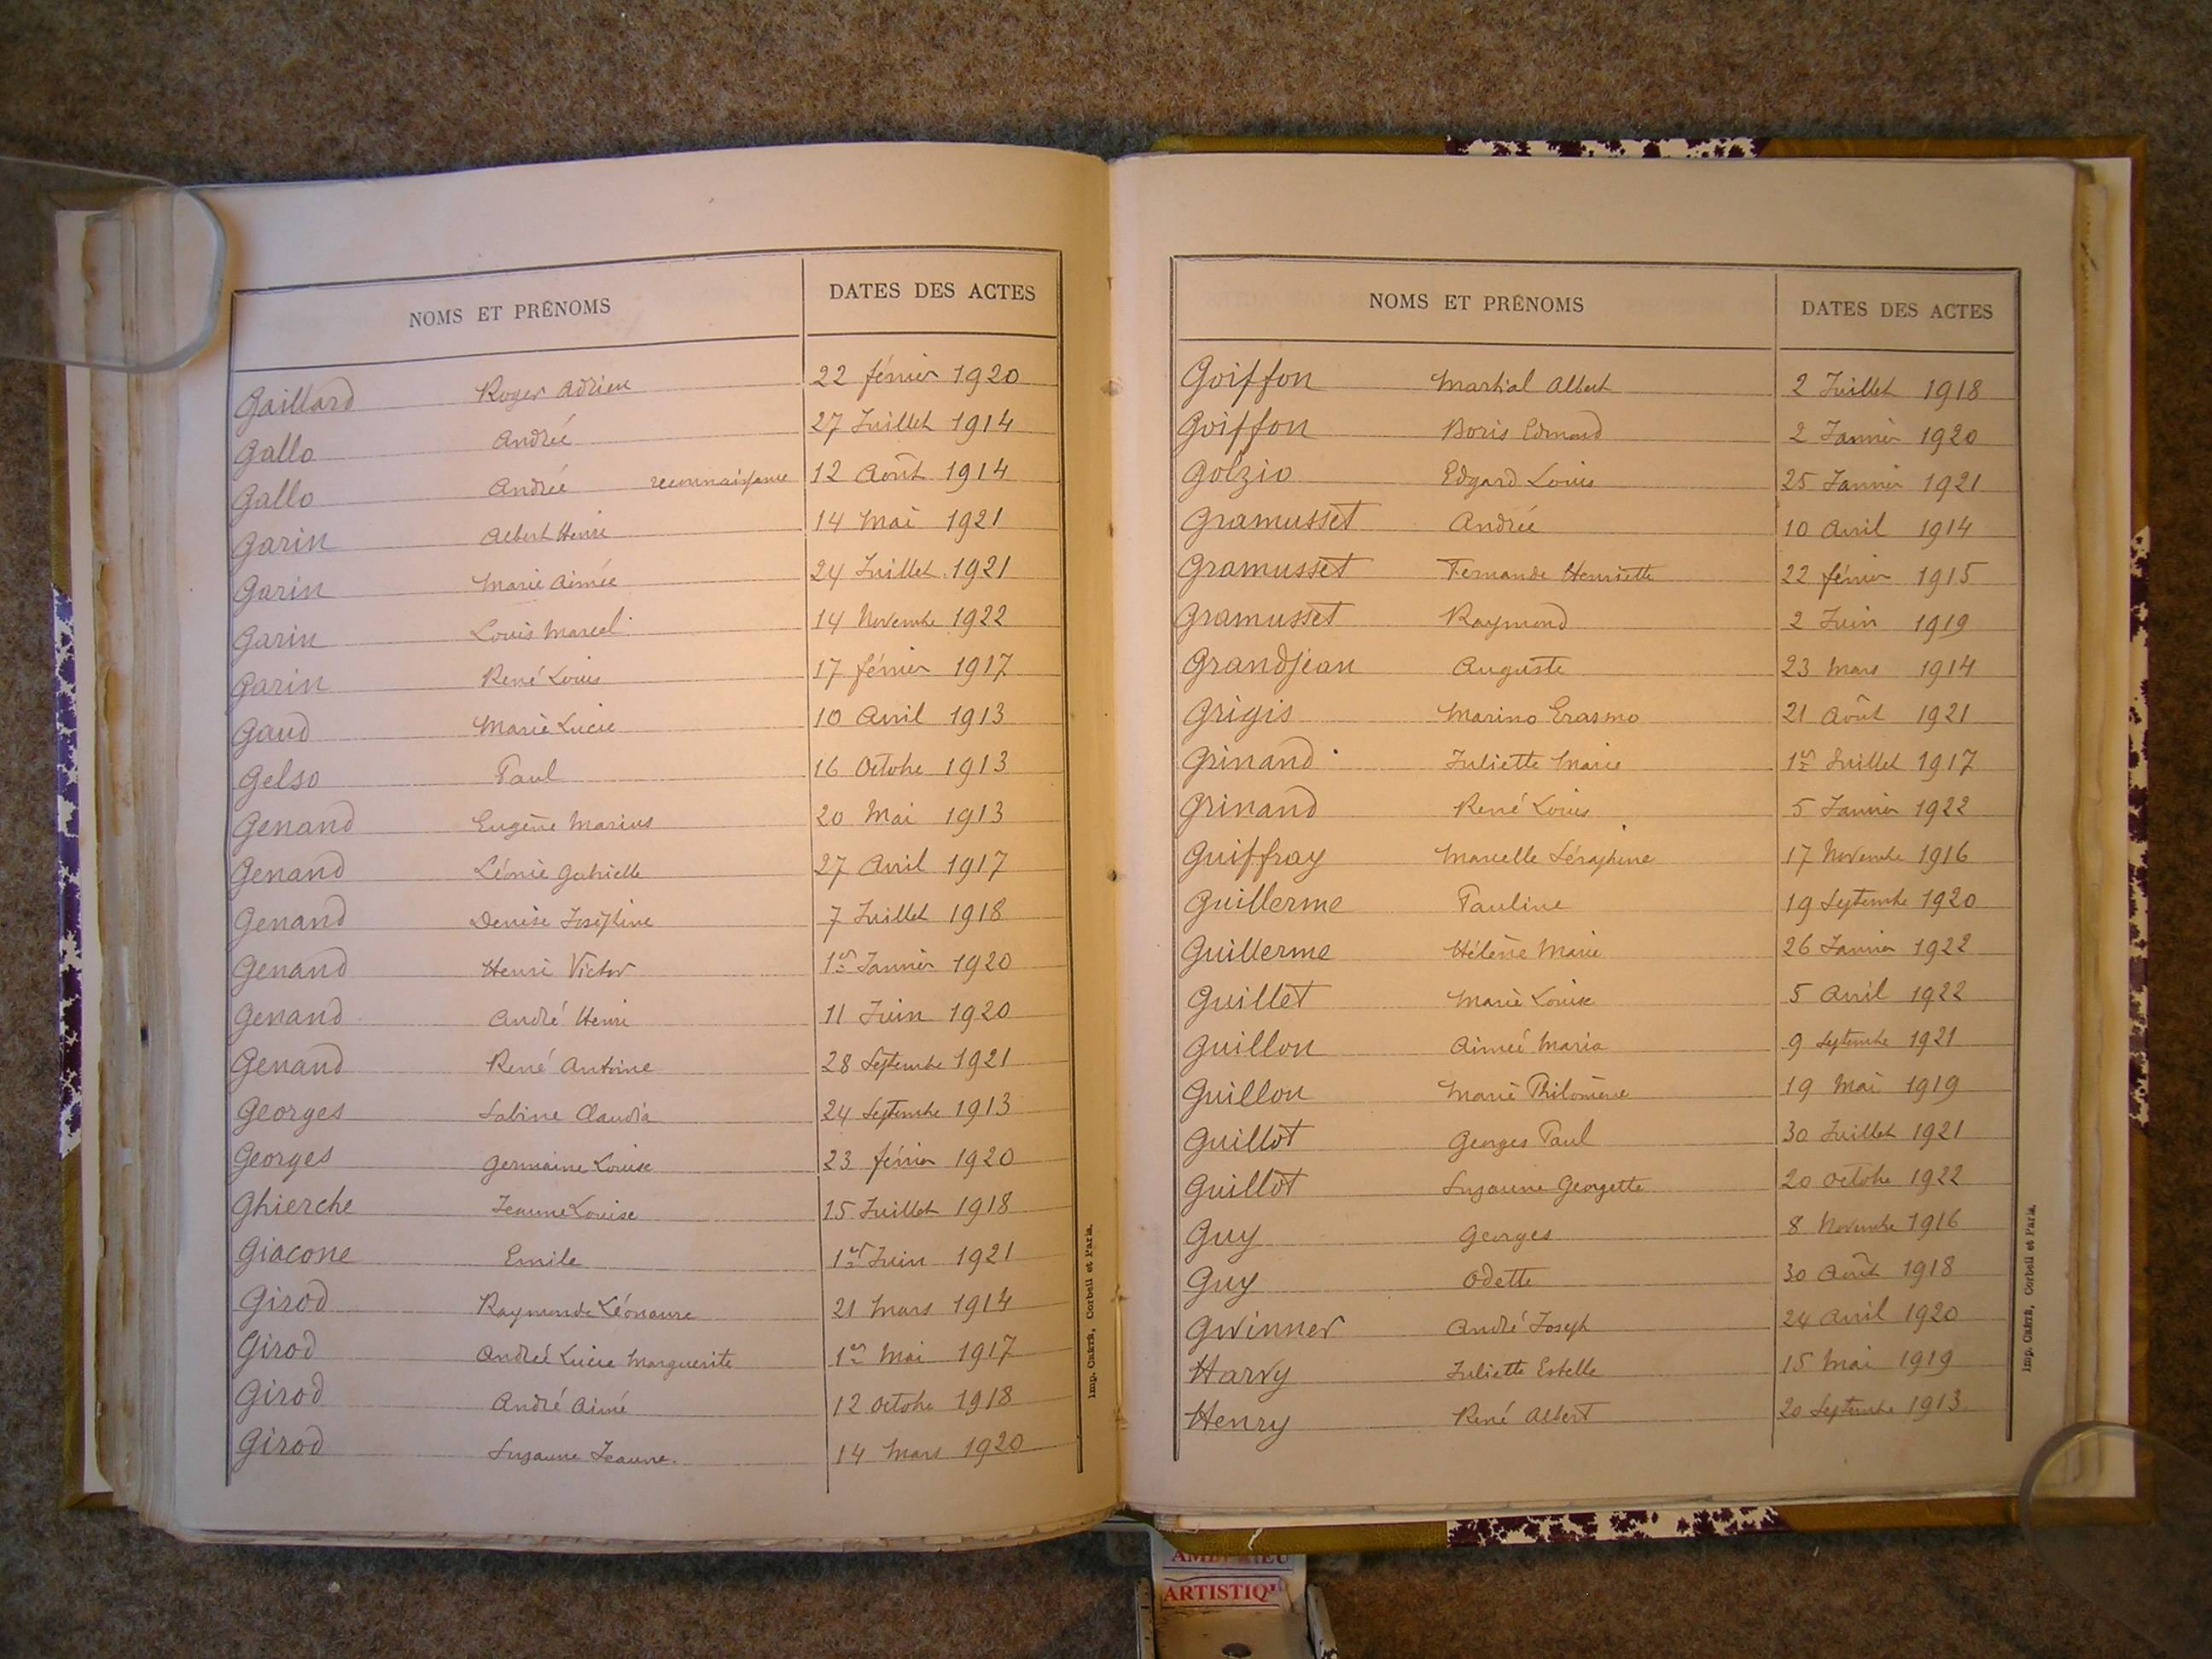 NOMS ET PRÉNOMS DATES DES ACTES
Gaillard Roger Adrien 22 février 1920
Gallo Andrée 27 Juillet 1914
Gallo Andrée reconnaissance 12 Août 1914
Garin Albert Henri 14 Mai 1921
Garin Marie Aimée 24 Juillet 1921
Garin Louis Marcel 14 Novembre 1922
Garin René Louis 17 février 1917
Gaud Marie Lucie 10 Avril 1913
Gelso Paul 16 Octobre 1913
Genand Eugène Marius 20 Mai 1913
Genand Léonie Gabrielle 27 Avril 1917
Genand Denise Joséphine 7 Juillet 1918
Genand Henri Victor 1er Janvier 1920
Genand André Henri 11 Juin 1920
Genand René Antoine 28 Septembre 1921
Georges Sabine Claudia 24 Septembre 1913
Georges Germaine Louise 23 février 1920
Ghierche Jeanne Louise 15 Juillet 1918
Giacone Emile 1er Juin 1921
Girod Raymonde Léonaure 21 Mars 1914
Girod Andrée Lucie Marguerite 1er Mai 1917
Girod André Aimé 12 Octobre 1918
Girod Suzanne Jeanne. 14 Mars 1920
Imp. CRÉTÉ, Corbeil et Paris.
NOMS ET PRÉNOMS DATES DES ACTES
Goiffon Martial Albert 2 Juillet 1918
Goiffon Boris Edmond 2 Janvier 1920
Golzio Edgard Louis 25 Janvier 1921
Gramusset Andrée 10 Avril 1914
Gramusset Fernande Henriette 22 février 1915
Gramusset Raymond 2 Juin 1919
Grandjean Auguste 23 Mars 1914
Grigis Marino Erasmo 21 Août 1921
Grinand Juliette Marie 1er Juillet 1917
Grinand René Louis 5 Janvier 1922
Guiffray Marcelle Séraphine 17 Novembre 1916
Guillerme Pauline 19 Septembre 1920
Guillerme Hélène Marie 26 Janvier 1922
Guillet Marie Louise 5 Avril 1922
Guillon Aimée Maria 9 Septembre 1921
Guillon Marie Philomène 19 Mai 1919
Guillot Georges Paul 30 Juillet 1921
Guillot Suzanne Georgette 20 Octobre 1922
Guy Georges 8 Novembre 1916
Guy Odette 30 Août 1918
Gwinner André Joseph 24 Avril 1920
Harvy Juliette Estelle 15 Mai 1919
Henry René Albert 20 Septembre 1913
Imp. CRÉTÉ, Corbeil et Paris.
ARTISTIQ